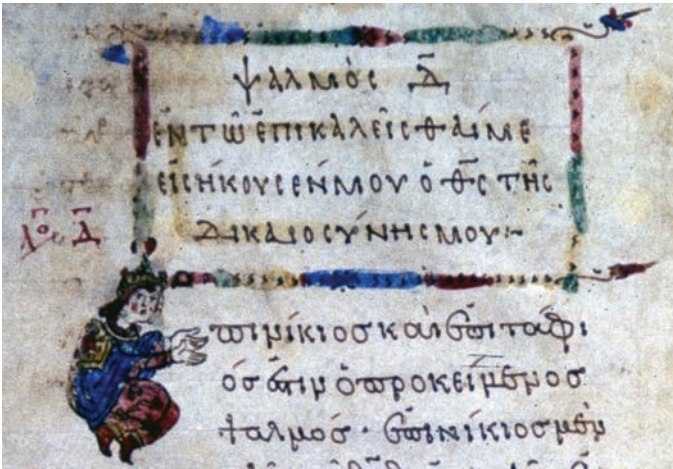 ψαλμὸς Δ̅
ἐν τῷ ἐπικαλεῖσθαί με
εἰσήκουσέν μου ὁ θ̅ς̅ τῆς
δικαιοσύνης μου:~
Δ̅
πινίκιος καὶ ἐπιτάφι
ός ἐστιν ὁ προκείμενος
ψαλμός · ἐπινίκιος μὲν